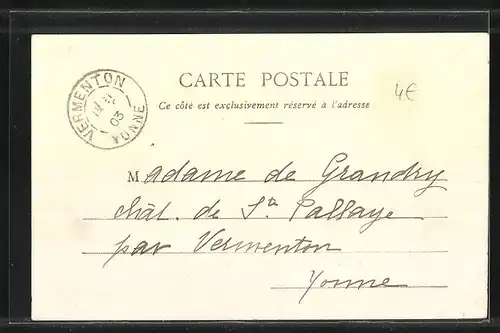 CARTE POSTALE
Ce côté est exclusivement réservé à l'adresse
4€
VERMENTON
03
YONNE
Madame de Grandry
chât. de Ste Pallaye
par Vermenton
Yonne